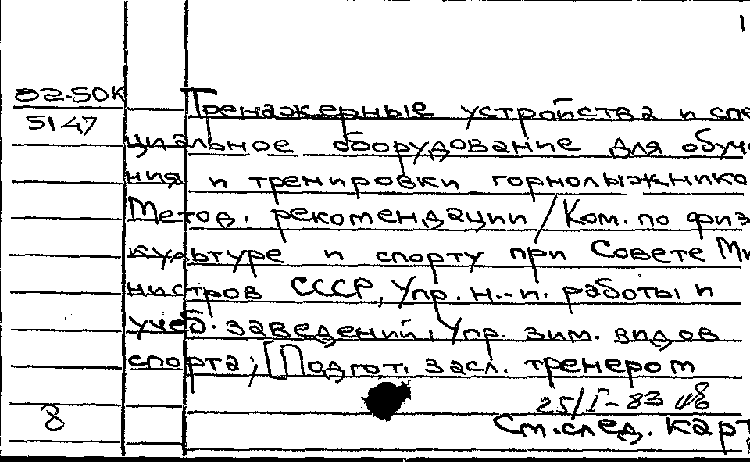 1
82-50К
5147
Тренажерные устройства и спе
циальное оборудование для обуче
ния и тренировки горнолыжнико
Метод. рекомендации / Ком. по физ
культуре и спорту при Совете Ми
нистров СССР, Упр. н.-и. работы и
учеб. заведений, Упр. зим. видов
спорта; [Подгот. засл. тренером
25/I-83
8
См. след. карт